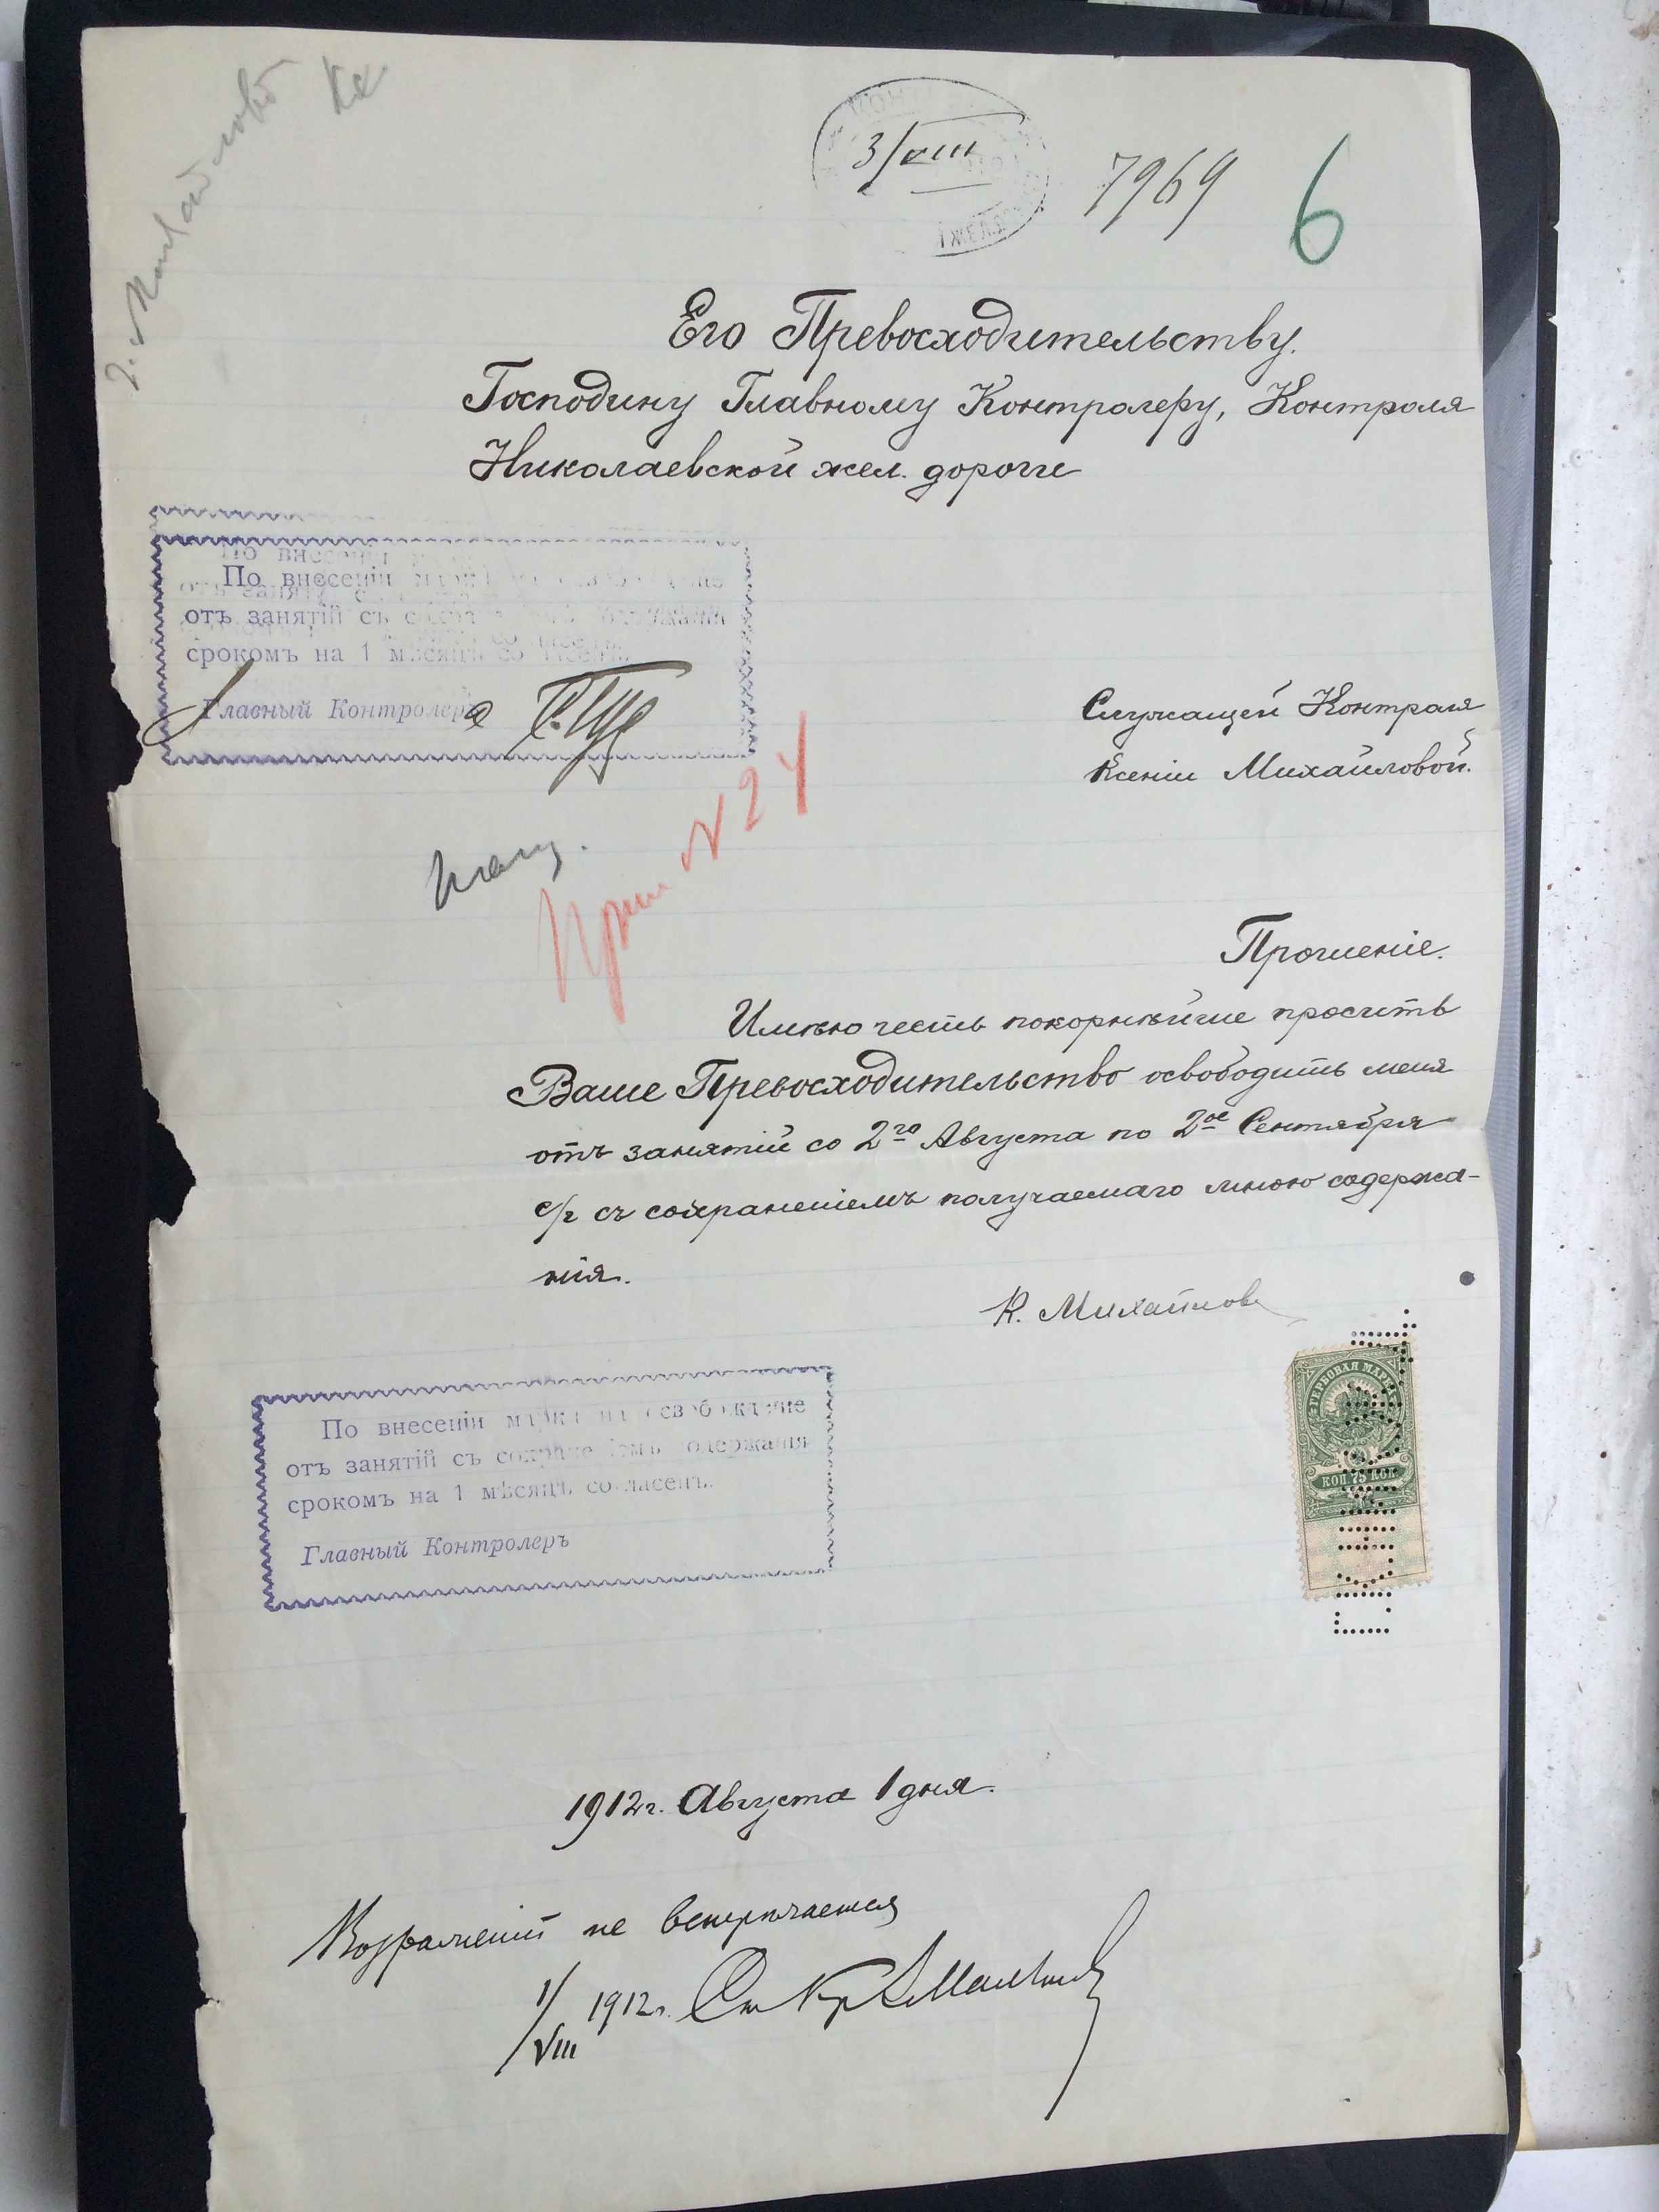 3/VIII
7969
6
Его Превосходительству.
Господину Главному Контролеру, Контроля
Николаевской жел. дороги
По внесеніи
отъ занятій съ
срокомъ на 1 мѣсяцъ согласенъ.
Главный Контролеръ
Служащей Контроля
Ксеніи Михайловой.
№ 24
Прошеніе.
Имѣю честь покорнѣйше просить
Ваше Превосходительство освободить меня
отъ занятій со 2го Августа по 2ое Сентября
с/г съ сохраненіемъ получаемаго мною содержа-
нія.
К. Михайлова
ГЕРБОВАЯ МАРКА
КОП. 75 КОП.
По внесеніи марки на освобожденіе
отъ занятій съ сохраненіемъ содержанія
срокомъ на 1 мѣсяцъ согласенъ.
Главный Контролеръ
1912 г. Августа 1 дня.
Возраженій не встрѣчается
1/VIII 1912 г.